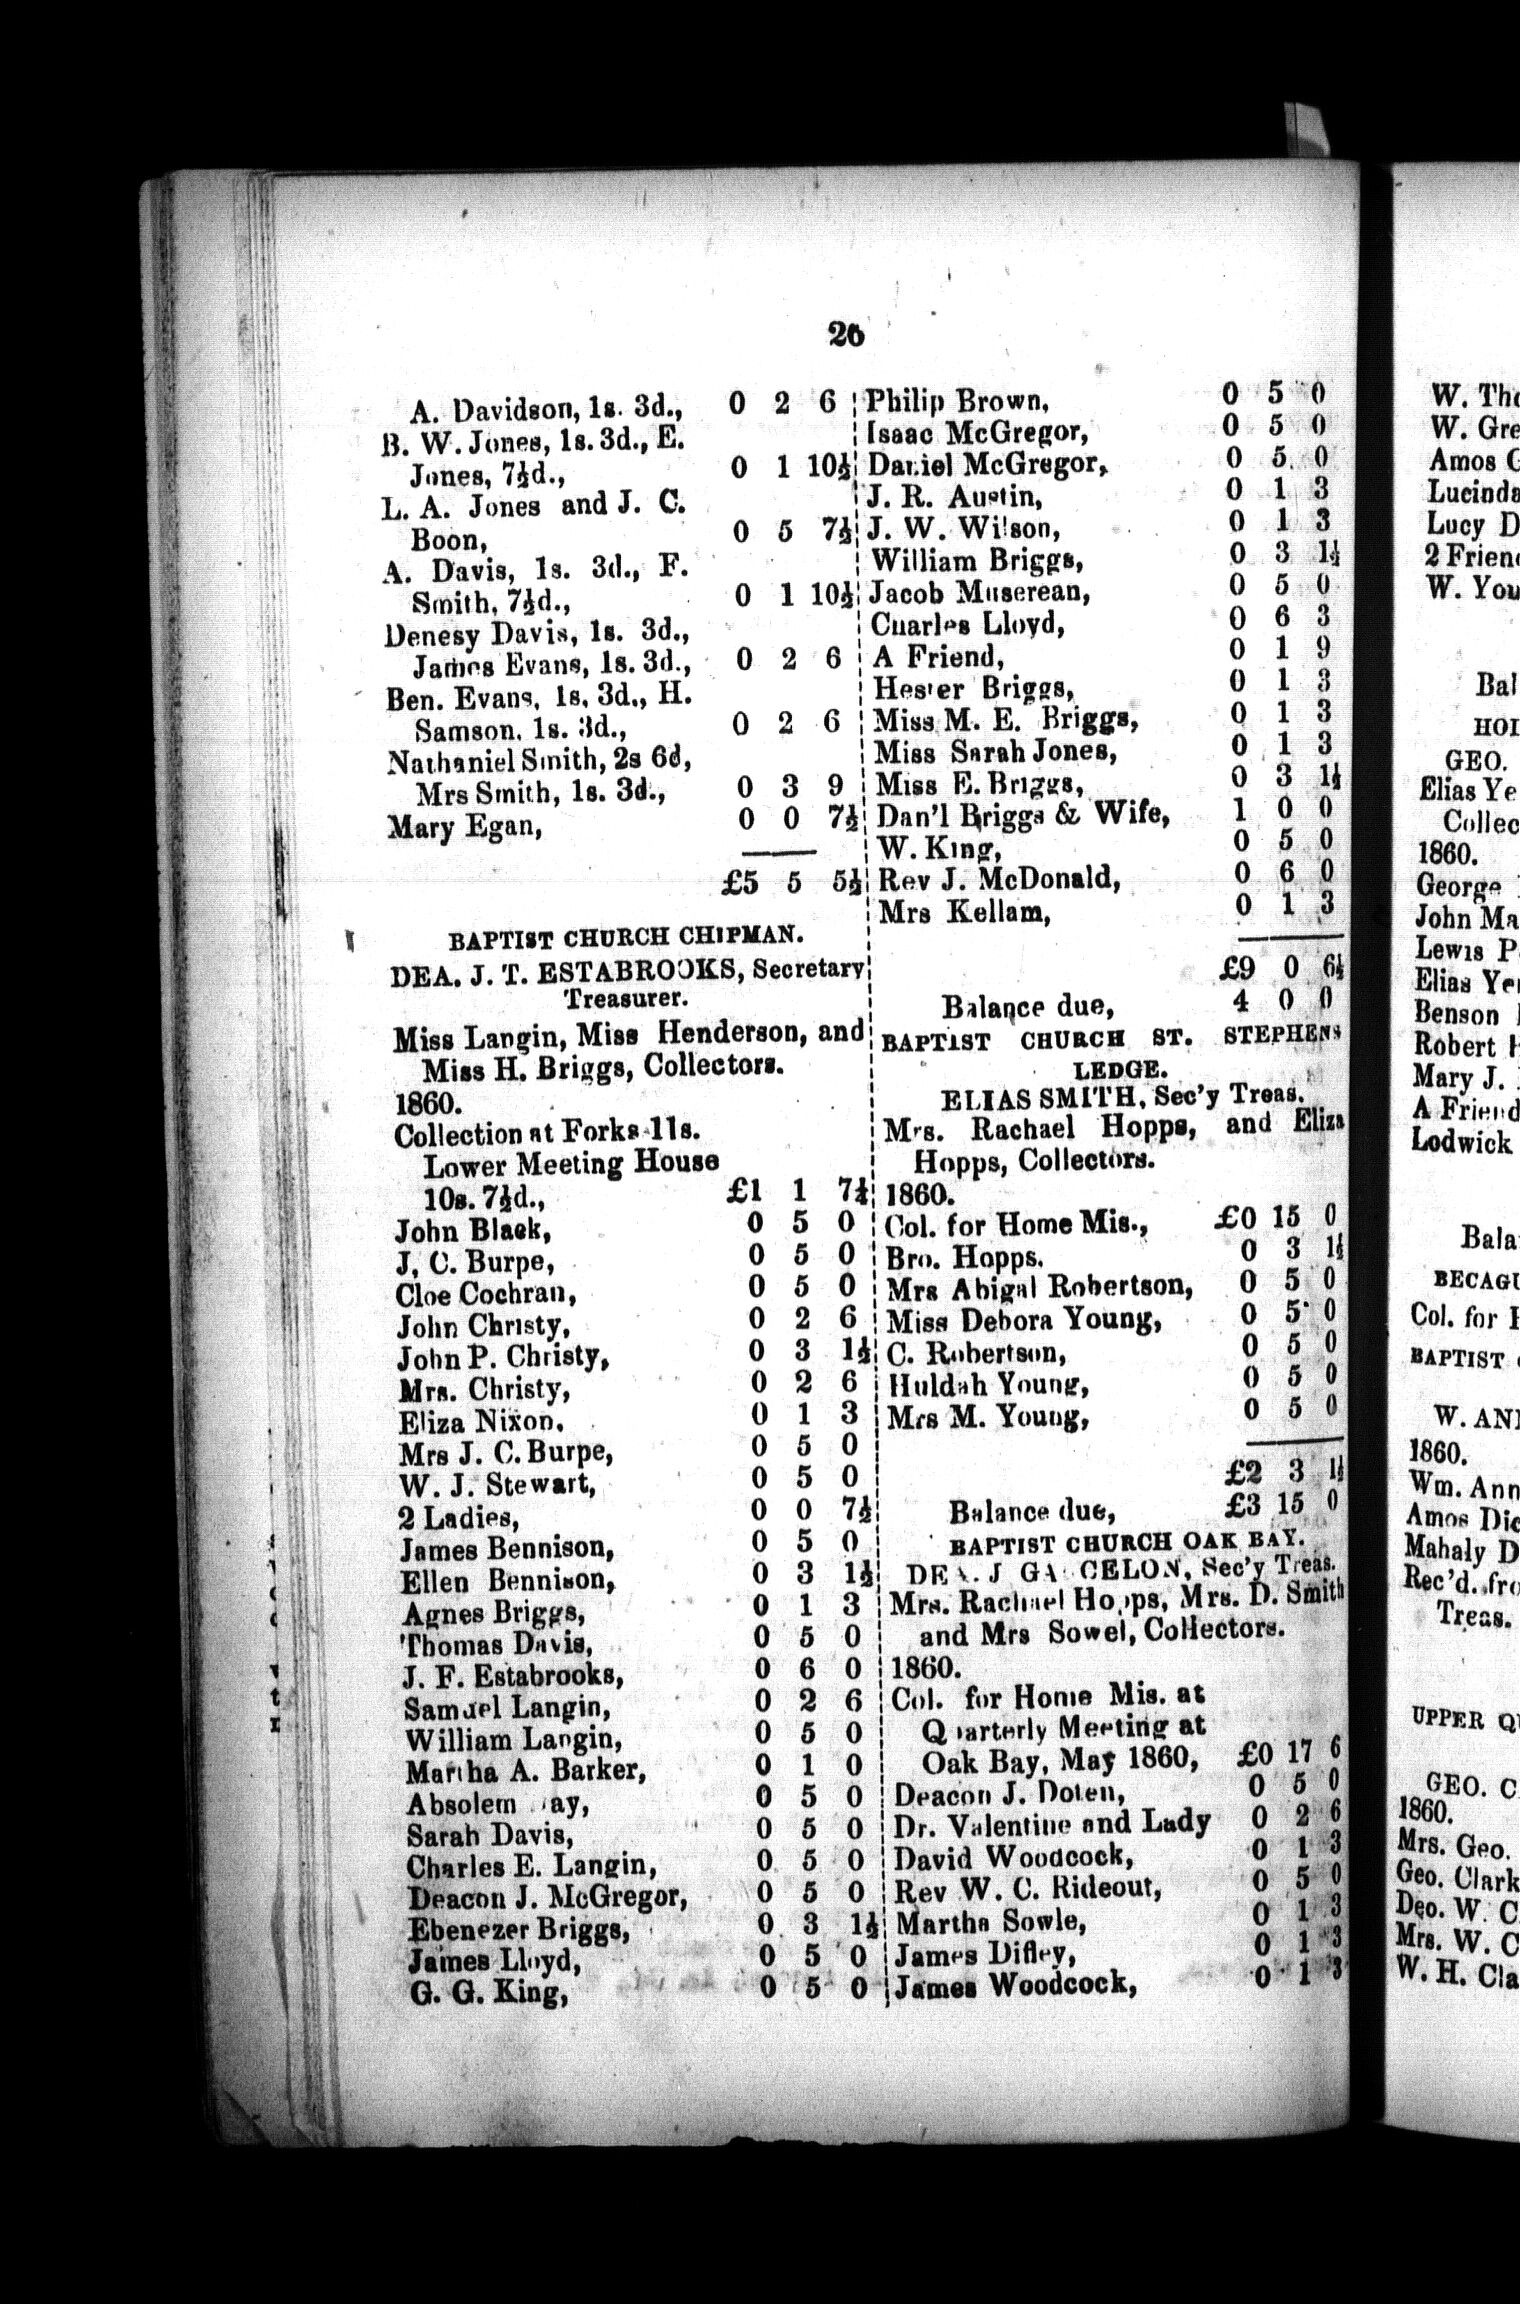 26
A. Davidson, 1s. 3d., 0 2 6
B. W. Jones, 1s. 3d., E.
Jones, 7½d., 0 1 10½
L. A. Jones and J. C.
Boon, 0 5 7½
A. Davis, 1s. 3d., F.
Smith, 7½d., 0 1 10½
Denesy Davis, 1s. 3d.,
James Evans, 1s. 3d., 0 2 6
Ben. Evans, 1s. 3d., H.
Samson, 1s. 3d., 0 2 6
Nathaniel Smith, 2s 6d,
Mrs Smith, 1s. 3d., 0 3 9
Mary Egan, 0 0 7½
£5 5 5½
BAPTIST CHURCH CHIPMAN.
DEA. J. T. ESTABROOKS, Secretary
Treasurer.
Miss Langin, Miss Henderson, and
Miss H. Briggs, Collectors.
1860.
Collection at Forks 11s.
Lower Meeting House
10s. 7½d., £1 1 7½
John Black, 0 5 0
J, C. Burpe, 0 5 0
Cloe Cochran, 0 5 0
John Christy, 0 2 6
John P. Christy, 0 3 1½
Mrs. Christy, 0 2 6
Eliza Nixon, 0 1 3
Mrs J. C. Burpe, 0 5 0
W. J. Stewart, 0 5 0
2 Ladies, 0 0 7½
James Bennison, 0 5 0
Ellen Bennison, 0 3 1½
Agnes Briggs, 0 1 3
Thomas Davis, 0 5 0
J. F. Estabrooks, 0 6 0
Samuel Langin, 0 2 6
William Langin, 0 5 0
Martha A. Barker, 0 1 0
Absolem 0 5 0
Sarah Davis, 0 5 0
Charles E. Langin, 0 5 0
Deacon J. McGregor, 0 5 0
Ebenezer Briggs, 0 3 1½
James Lloyd, 0 5 0
G. G. King, 0 5 0
Philip Brown, 0 5 0
Isaac McGregor, 0 5 0
Daniel McGregor, 0 5 0
J. R. Austin, 0 1 3
J. W. Wilson, 0 1 3
William Briggs, 0 3 1½
Jacob Muserean, 0 5 0
Charles Lloyd, 0 6 3
A Friend, 0 1 9
Hester Briggs, 0 1 3
Miss M. E. Briggs, 0 1 3
Miss Sarah Jones, 0 1 3
Miss E. Briggs, 0 3 1½
Dan'l Briggs & Wife, 1 0 0
W. King, 0 5 0
Rev J. McDonald, 0 6 0
Mrs Kellam, 0 1 3
£9 0 6½
Balance due, 4 0 0
BAPTIST CHURCH ST. STEPHENS
LEDGE.
ELIAS SMITH, Sec'y Treas.
Mrs. Rachael Hopps, and Eliza
Hopps, Collectors.
1860.
Col. for Home Mis., £0 15 0
Bro. Hopps. 0 3 1½
Mrs Abigal Robertson, 0 5 0
Miss Debora Young, 0 5 0
C. Robertson, 0 5 0
Huldah Young, 0 5 0
Mrs M. Young, 0 5 0
£2 3 1½
Balance due, £3 15 0
BAPTIST CHURCH OAK BAY.
DEA. J CELON, Sec'y Treas.
Mrs. Rachael Hopps, Mrs. D. Smith
and Mrs Sowel, Collectors.
1860.
Col. for Home Mis. at
Quarterly Meeting at
Oak Bay, May 1860, £0 17 6
Deacon J. Doten, 0 5 0
Dr. Valentine and Lady 0 2 6
David Woodcock, 0 1 3
Rev W. C. Rideout, 0 5 0
Martha Sowle, 0 1 3
James Difley, 0 1 3
James Woodcock, 0 1 3
W. Tho
W. Gre
Amos
Lucinda
Lucy D
2 Frien
W. You
Bal
HOL
GEO.
Elias Ye
Collec
1860.
George
John Ma
Lewis P
Elias Yer
Benson
Robert
Mary J.
A Friend
Lodwick
Bala
BECAGU
Col. for
BAPTIST
W. AN
1860.
Wm. Ann
Amos Dic
Mahaly D
Rec'd. fro
Treas.
UPPER QU
GEO. C
1860.
Mrs. Geo.
Geo. Clark
Deo. W. C
Mrs. W. C
W. H. Cla